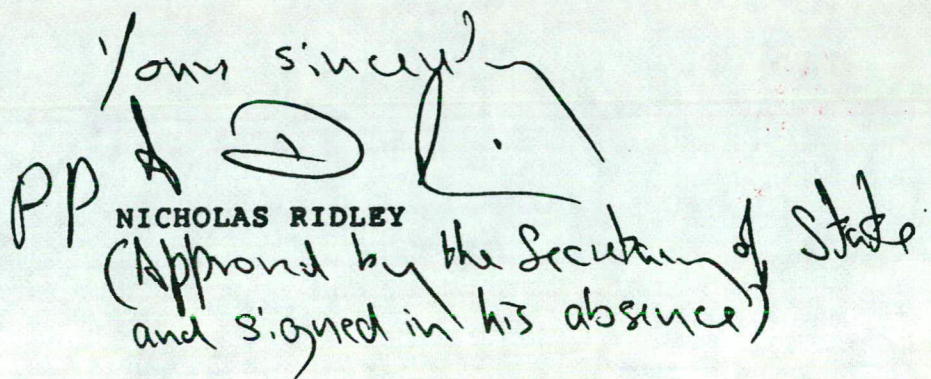 Yours sincerely
pp
NICHOLAS RIDLEY
(Approved by the Secretary of State
and signed in his absence)